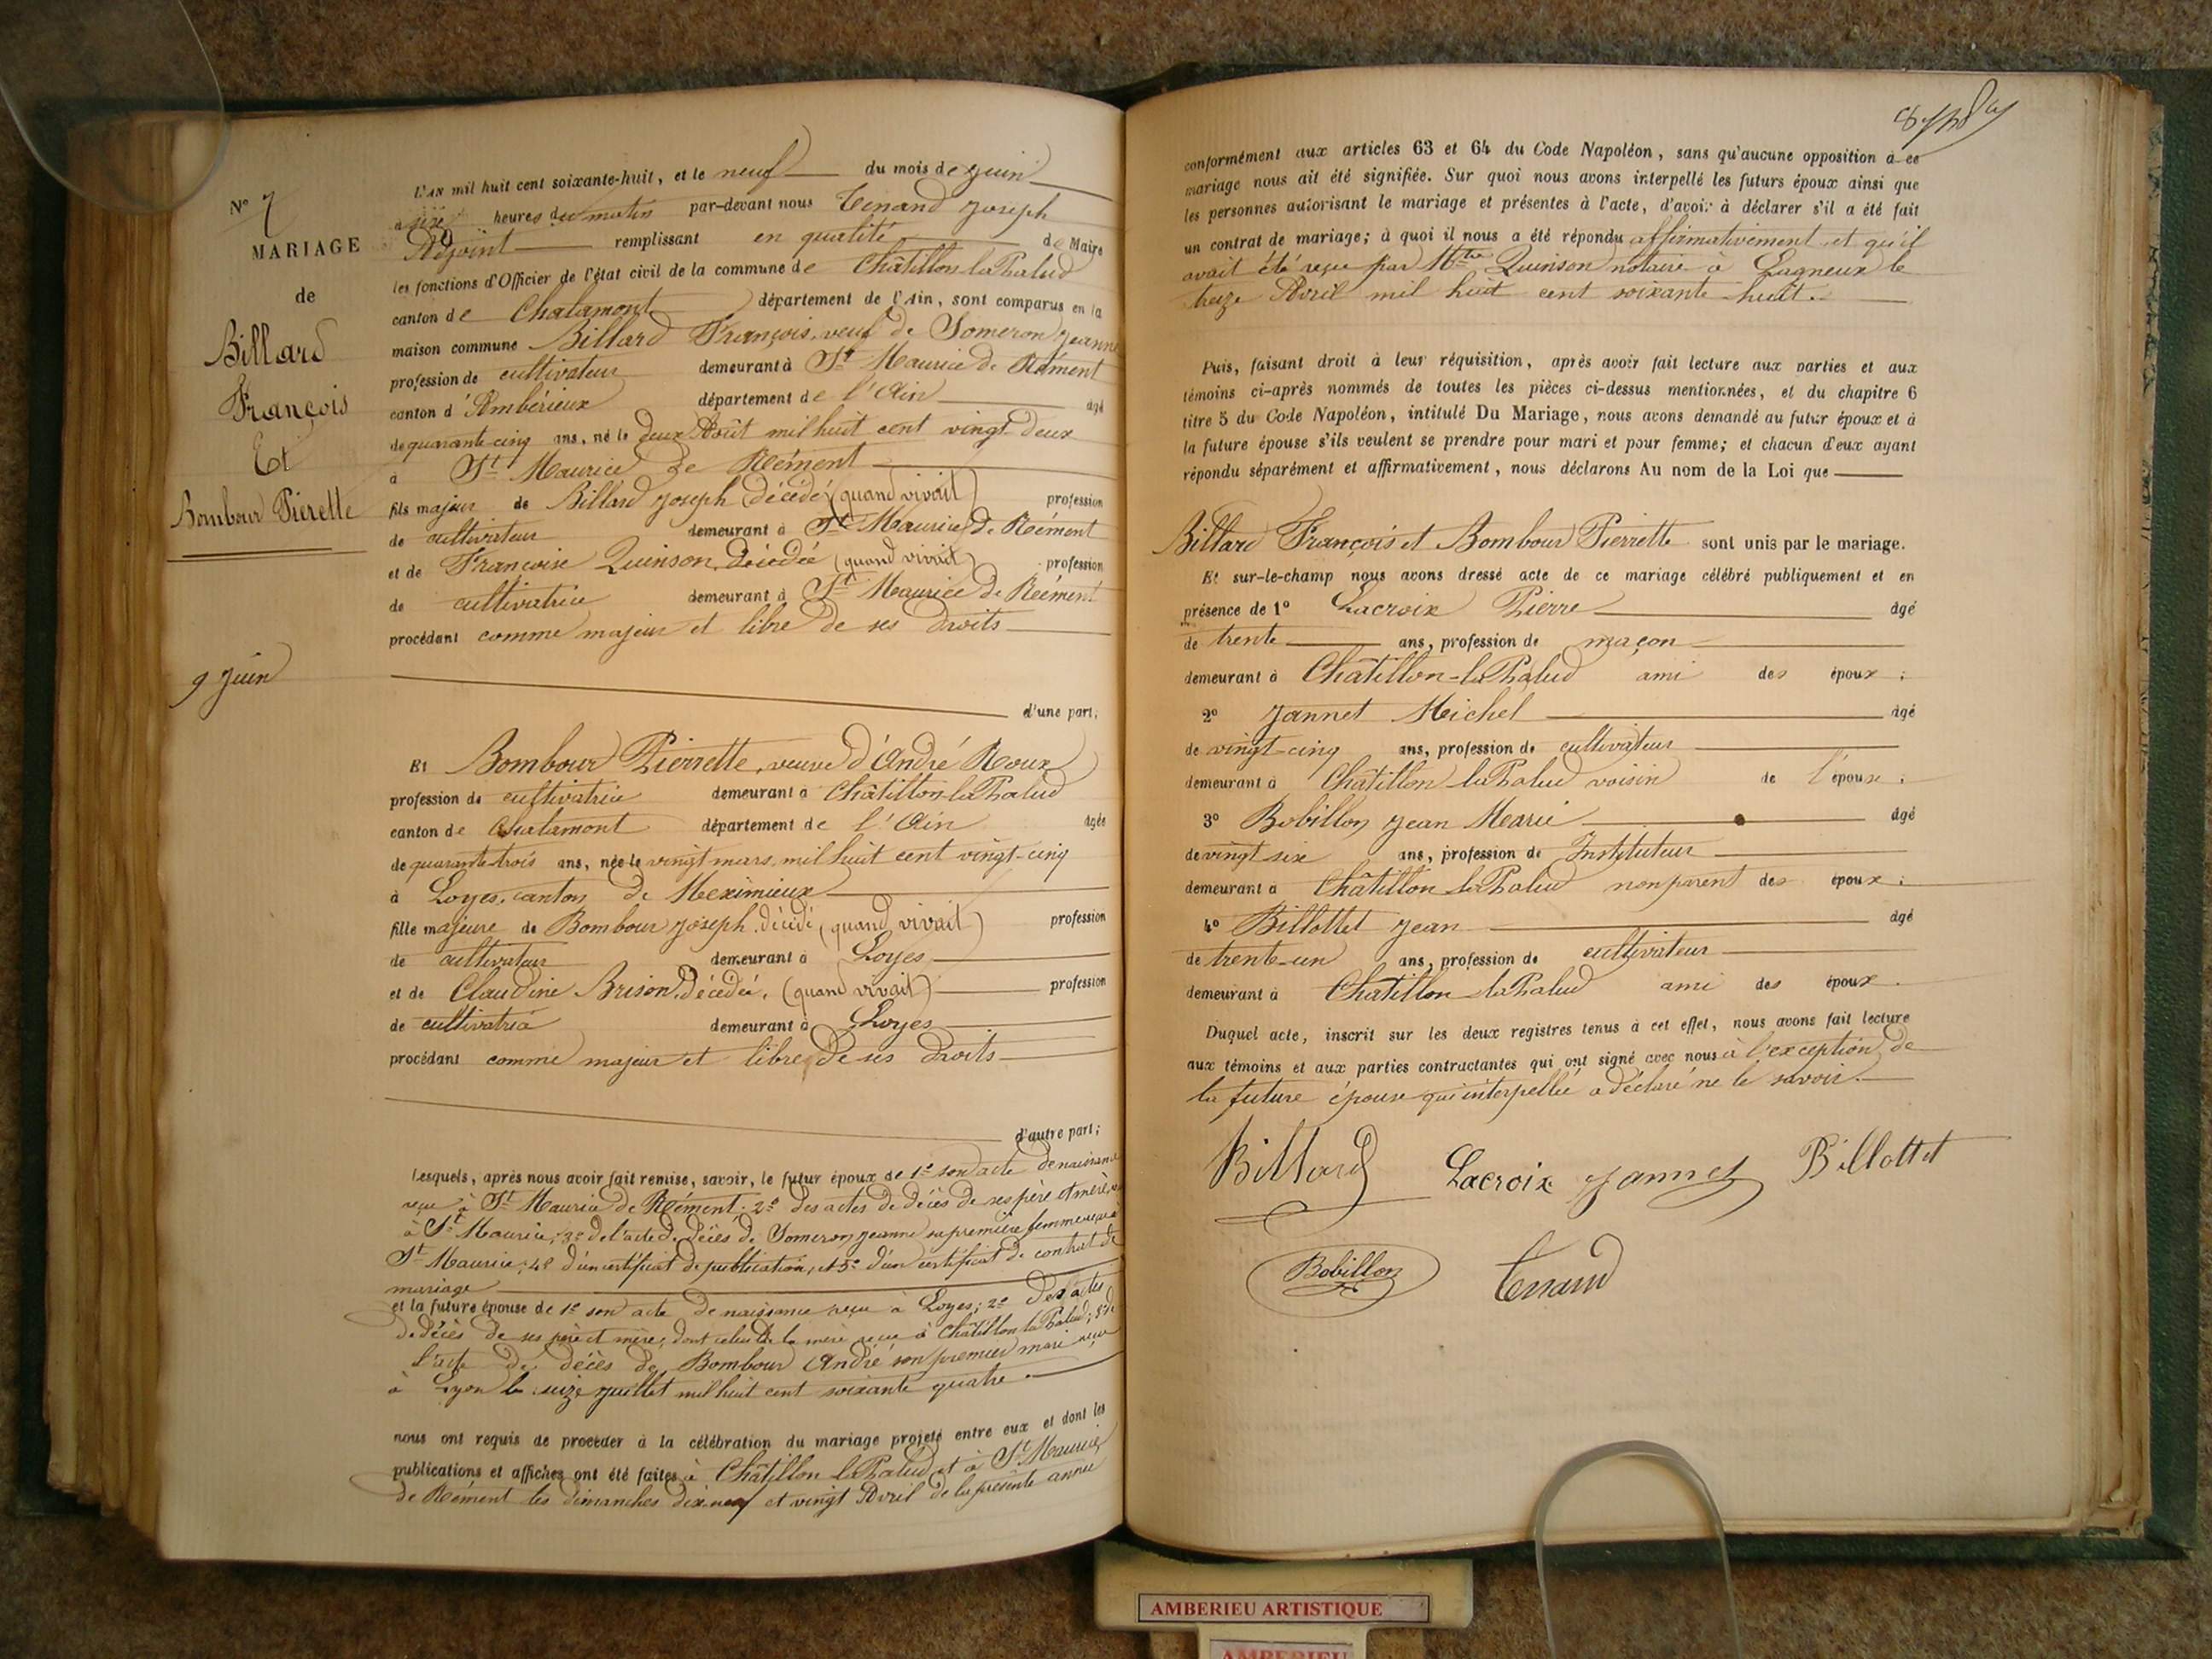 N° 7
MARIAGE
de
Billard
François
Et
Bombour Pierette
9 Juin
L'AN mil huit cent soixante-huit, et le neuf du mois de Juin
à six heures du matin par-devant nous Tenand Joseph
Adjoint remplissant en qualité de Maire
les fonctions d'Officier de l'état civil de la commune de Châtillon la Palud
canton de Chalamont département de l'Ain, sont comparus en la
maison commune Billard François, veuf de Someron Jeanne
profession de cultivateur demeurant à St Maurice de Rément
canton d'Ambérieux département de l'Ain âgé
de quarante cinq ans, né le deux Août mil huit cent vingt deux
à St Maurice de Rément
fils majeur de Billard Joseph décédé (quand vivait) profession
de cultivateur demeurant à St Maurice de Rément
et de Françoise Quinson, décédée (quand vivait) profession
de cultivatrice demeurant à St Maurice de Rément
procédant comme majeur et libre de ses droits
d'une part;
Et Bombour Pierrette, veuve d'André Roux
profession de cultivatrice demeurant à Châtillon la Palud
canton de Chalamont département de l'Ain âgée
de quarante trois ans, née le vingt mars mil huit cent vingt-cinq
à Loyes, canton de Meximieux
fille majeure de Bombour Joseph, décédé, (quand vivait) profession
de cultivateur demeurant à Loyes
et de Claudine Brison, décédée, (quand vivait) profession
de cultivatrice demeurant à Loyes
procédant comme majeur et libre de ses droits
d'autre part;
Lesquels, après nous avoir fait remise, savoir, le futur époux de 1° son acte de naissance
reçu à St Maurice de Rément: 2° des actes de décès de ses père et mère,
à St Maurice; 3° de l'acte de décès de Someron Jeanne sa première femme reçu à
St Maurice; 4° d'un certificat de publication, et 5° d'un certificat de contrat de
mariage
et la future épouse de 1° son acte de naissance reçu à Loyes; 2° des actes
de décès de ses père et mère, dont celui de la mère reçu à Châtillon la Palud; 3° de
l'acte de décès de Bombour André son premier mari reçu
à Lyon le seize Juillet mil huit cent soixante quatre.
nous ont requis de procéder à la célébration du mariage projeté entre eux et dont les
publications et affiches ont été faites à Châtillon la Palud et à St Maurice
de Rément les dimanches dix-neuf et vingt Avril de la présente année
conformément aux articles 63 et 64 du Code Napoléon, sans qu'aucune opposition à ce
mariage nous ait été signifiée. Sur quoi nous avons interpellé les futurs époux ainsi que
les personnes autorisant le mariage et présentes à l'acte, d'avoir à déclarer s'il a été fait
un contrat de mariage; à quoi il nous a été répondu affirmativement et qu'il
avait été reçu par Mtre Quinson notaire à Lagneux le
treize Avril mil huit cent soixante huit.
Puis, faisant droit à leur réquisition, après avoir fait lecture aux parties et aux
témoins ci-après nommés de toutes les pièces ci-dessus mentionnées, et du chapitre 6
titre 5 du Code Napoléon, intitulé Du Mariage, nous avons demandé au futur époux et à
la future épouse s'ils veulent se prendre pour mari et pour femme; et chacun d'eux ayant
répondu séparément et affirmativement, nous déclarons Au nom de la Loi que
Billard François et Bombour Pierrette sont unis par le mariage.
Et sur-le-champ nous avons dressé acte de ce mariage célébré publiquement et en
présence de 1° Lacroix Pierre âgé
de trente ans, profession de maçon
demeurant à Châtillon-la Palud ami des époux;
2° Jannet Michel âgé
de vingt-cinq ans, profession de cultivateur
demeurant à Châtillon la Palud voisin de l'épouse;
3° Bobillon Jean Marie âgé
de vingt six ans, profession de Instituteur
demeurant à Châtillon la Palud non parent des époux;
4° Billottet Jean âgé
de trente-un ans, profession de cultivateur
demeurant à Châtillon la Palud ami des époux.
Duquel acte, inscrit sur les deux registres tenus à cet effet, nous avons fait lecture
aux témoins et aux parties contractantes qui ont signé avec nous à l'exception de
la future épouse qui interpellée a déclaré ne le savoir.
Billard Lacroix Jannet Billottet
Bobillon Tenand
AMBERIEU ARTISTIQUE
AMBERIEU